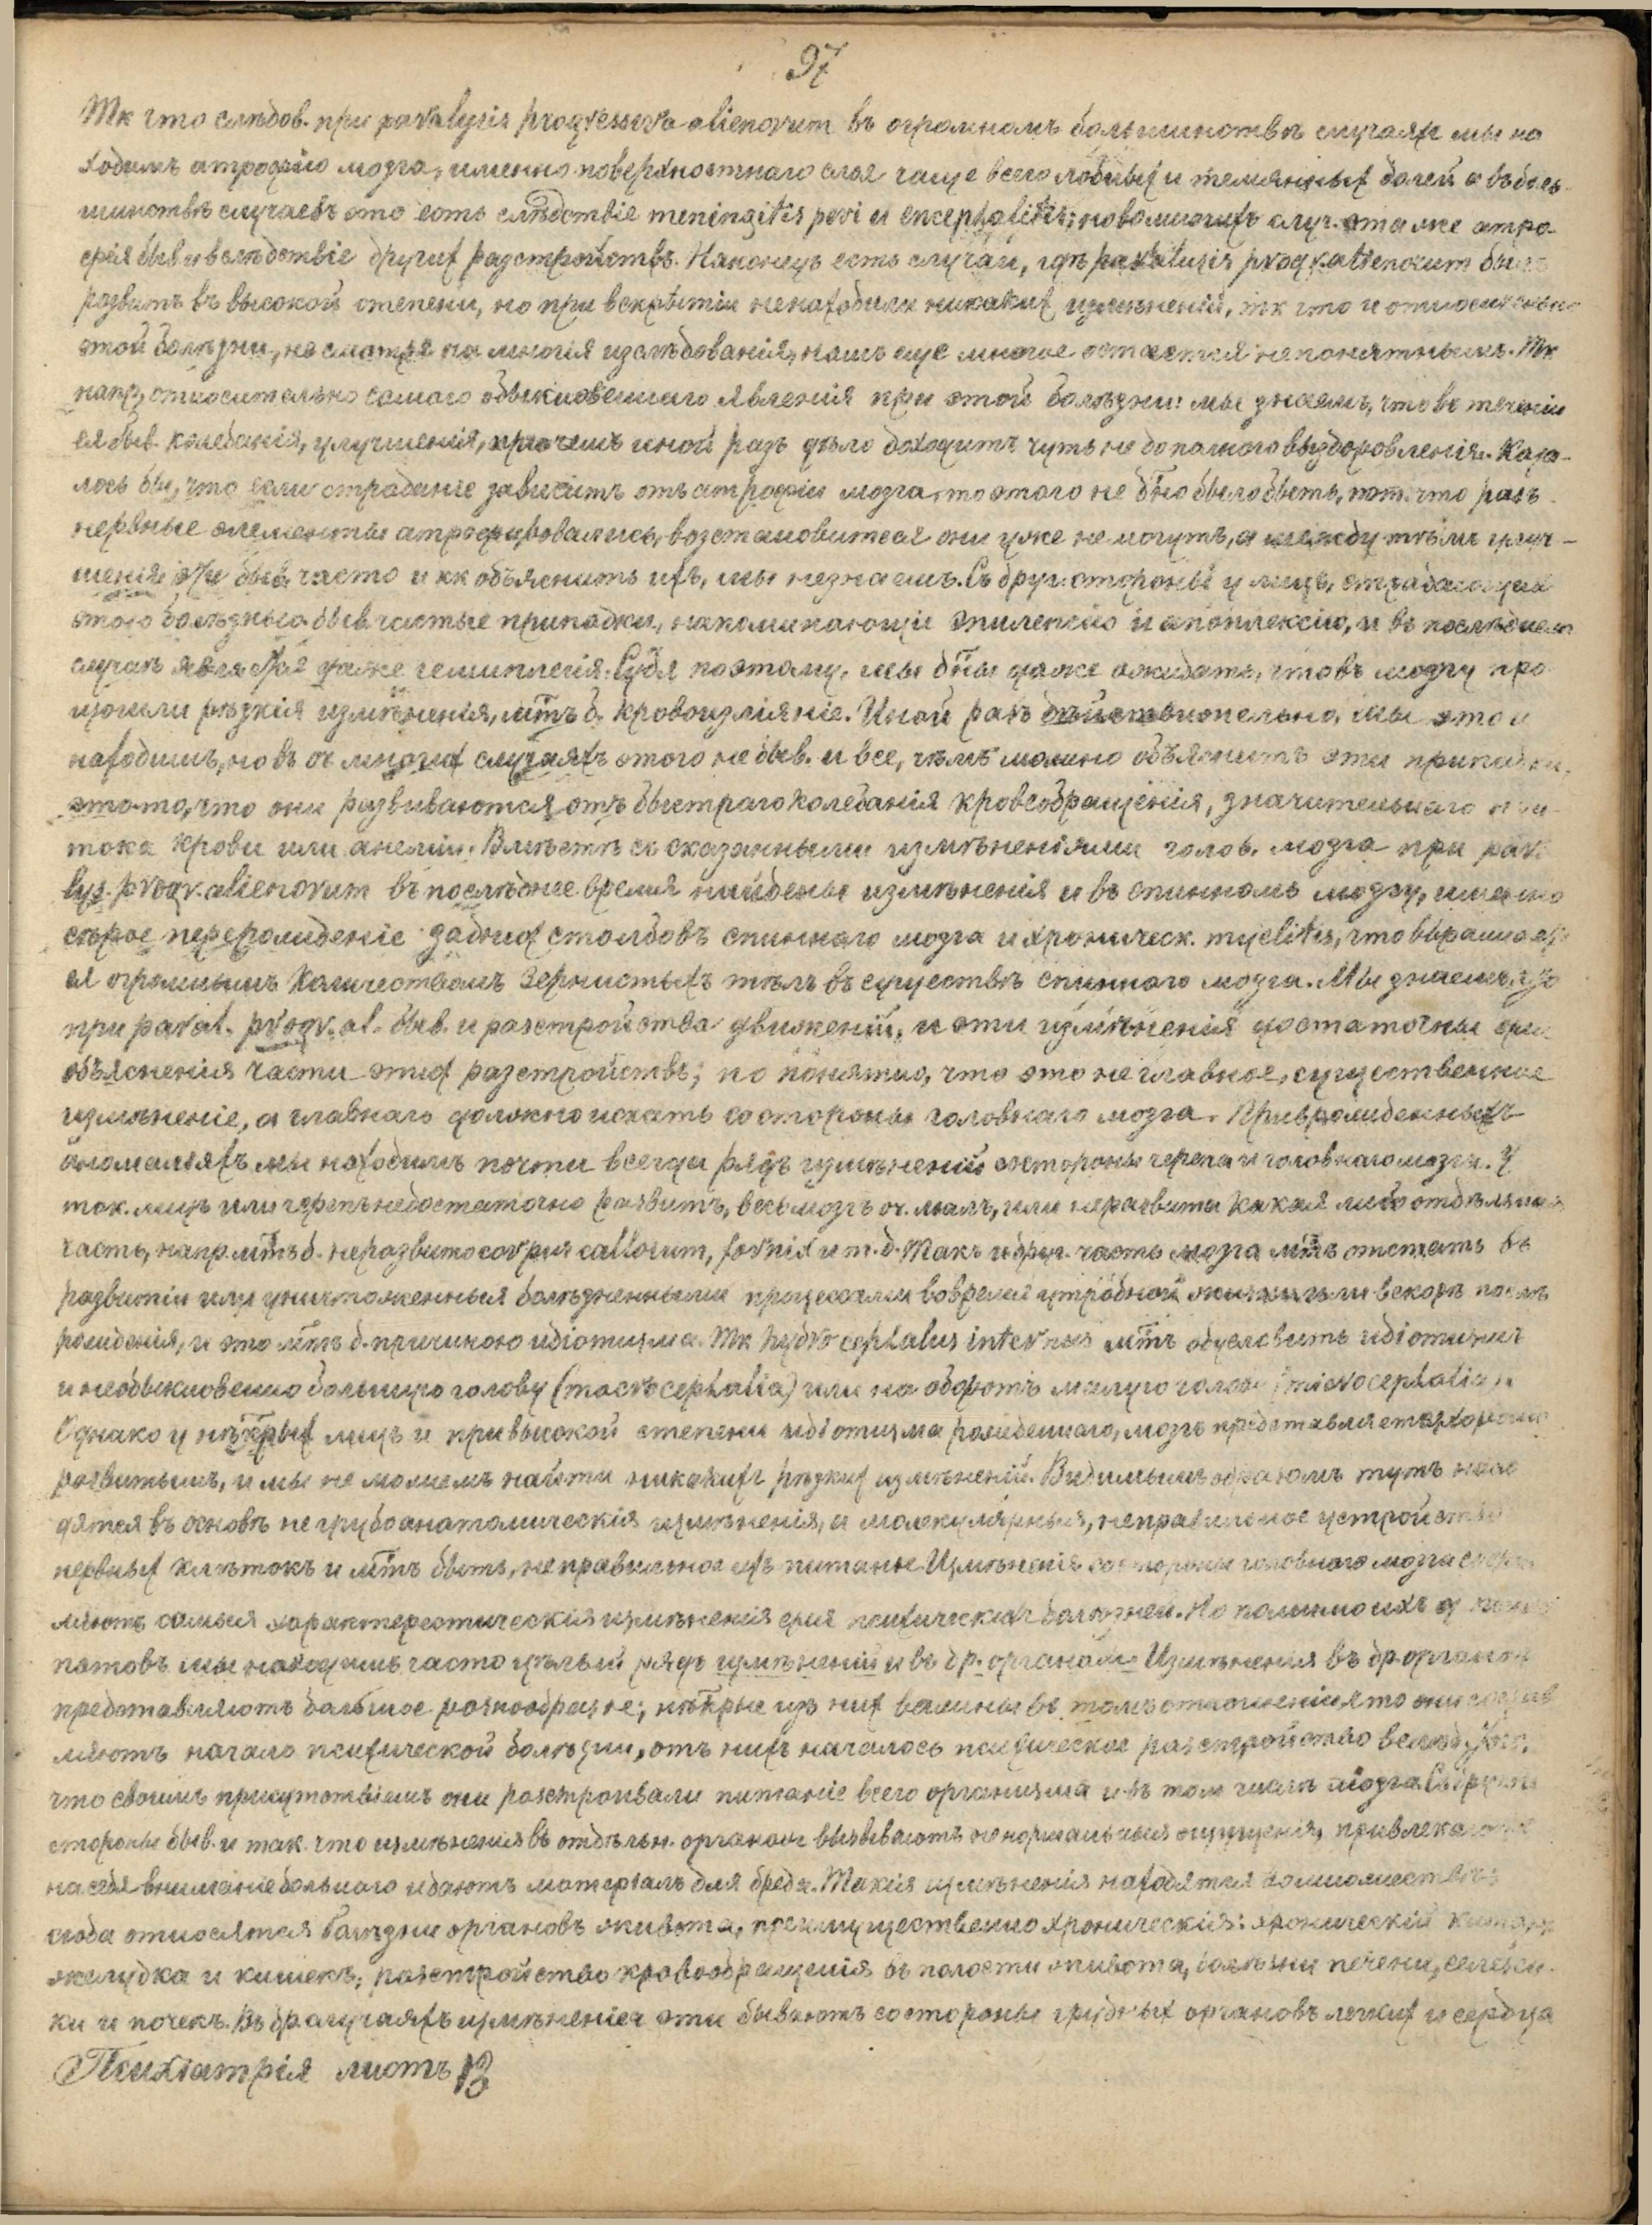 97
Тк что слѣдов. при paralysis progressiva alienorum въ огромномъ большинствѣ случаях мы на
ходимъ атрофію мозга, именно поверхностнаго слоя чаще всего лобных и темянных долей а въ боль-
шинствѣ случаевъ это есть слѣдствіе meningitis pori и encephalitis; но во многихъ случ. эта же атро-
фія быв. и вслѣдствіе других разстройствъ. Наконецъ есть случаи, гдѣ paralysis progr. alienorum былъ
развитъ въ высокой степени, но при вскрытіи не находили никаких измѣненій, тк что и относительно
этой болѣзни, не смотря на многія изслѣдованія, намъ еще многое остается непонятнымъ. Тк
напр, относительно самаго обыкновеннаго явленія при этой болѣзни: мы знаемъ, что въ теченіи
ея быв. колебанія, улучшенія, причемъ иной разъ дѣло доходитъ чуть не до полнаго выздоровленія. Каза-
лось бы, что если страданіе зависитъ отъ атрофіи мозга, то этого не дно было быть, пот. что разъ
нервные элементы атрофировались, возстановиться они уже не могутъ, а между тѣмъ улуч-
шенія эти быв. часто и кк объяснить ихъ, мы не знаемъ. Съ друг. стороны у лицъ, страдающих
этою болѣзнью быв. частые припадки, напоминающіе эпилепсію и апоплексію, и въ послѣднем
случаѣ является даже гемиплегія. Судя поэтому, мы дны даже ожидать, что въ мозгу про
изошли рѣзкія измѣненія, мтъ б. кровоизліяніе. Иной разъ дѣйствительно, мы это и
находимъ, но въ оч многих случаяхъ этого не быв. и все, чѣмъ можно объяснить эти припадки,
это то, что они развиваются отъ быстраго колебанія кровообращенія, значительнаго при-
тока крови или анеміи. Вмѣстѣ съ сказанными измѣненіями голов. мозга при para
lys. progr. alienorum въ послѣднее время найдены измѣненія и въ спинномъ мозгу, именно
сѣрое перерожденіе задних столбовъ спиннаго мозга и хроническ. myelitis, что выражает
ся огромнымъ количествомъ зернистыхъ тѣлъ въ существѣ спиннаго мозга. Мы знаемъ, что
при paral. progr. al. быв. и разстройства движеній, и эти измѣненія достаточны для
объясненія части этих разстройствъ; но понятно, что это не главное, существенное
измѣненіе, а главнаго должно искать со стороны головнаго мозга. При врожденныхъ
аномаліяхъ мы находимъ почти всегда рядъ измѣненій со стороны черепа и головнаго мозга. У
так. лицъ или черепъ недостаточно развитъ, весь мозгъ оч. малъ, или неразвита какая либо отдѣльная
часть, напр. мтъ б. неразвито corpus callosum, fornix и т. д. Такъ и друг. часть мозга мтъ отстать въ
развитіи или уничтоженныя болѣзненными процессами во время утробной жизни или вскорѣ послѣ
рожденія, и это мтъ б. причиною идіотизма. Тк hydrocephalus internus мтъ обусловить идіотизмъ
и необыкновенно большую голову (macrocephalia) или на оборотъ малую голову (microcephalia).
Однако у нѣкрых лицъ и при высокой степени идіотизма рожденнаго, мозгъ представляется хорошо
развитымъ, и мы не можемъ найти никакихъ рѣзких измѣненій. Видимымъ образомъ тутъ нахо
дятся въ основѣ не грубо анатомическія измѣненія, а молекулярныя, неправильное устройство
нервных клѣтокъ и мтъ быть, неправильное ихъ питаніе. Измѣненія со стороны головнаго мозга состав
ляютъ самыя характеристическія измѣненія для психических болѣзней. Но помимо ихъ у психо
патовъ мы находимъ часто цѣлый рядъ измѣненій и въ др. органахъ. Измѣненія въ др органахъ
представляютъ большое разнообразіе; нѣкрые из них важны въ томъ отношеніи, что они состав
ляютъ начало психической болѣзни, отъ нихъ началось психическое разстройство вслѣдств. того,
что своимъ присутствіемъ они разстроивали питаніе всего организма и въ том числѣ мозга. Съ другой
стороны быв. и так. что измѣненія въ отдѣльн. органахъ вызываютъ ненормальныя ощущенія, привлекающія
на себя вниманіе больнаго и даютъ матеріалъ для бреда. Такія измѣненія находятся во множествѣ:
сюда относятся болѣзни органовъ живота, преимущественно хроническія: хроническій катарръ
желудка и кишекъ; разстройство кровообращенія въ полости живота, болѣзни печени, селезен-
ки и почекъ. Въ др. случаяхъ измѣненія эти бываютъ со стороны грудных органовъ легких и сердца
Психіатрія листъ 13